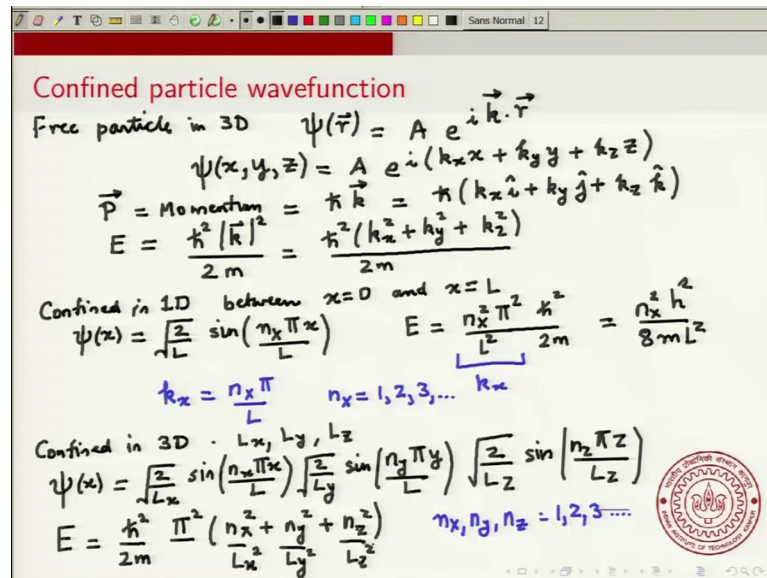 Sans Normal 12
Confined particle wavefunction
Free particle in 3D ψ(r⃗) = A e^{i k⃗·r⃗}
ψ(x,y,z) = A e^{i(k_x x + k_y y + k_z z)}
P⃗ = Momentum = ħ k⃗ = ħ(k_x î + k_y ĵ + k_z k̂)
E = ħ²|k⃗|²/2m = ħ²(k_x² + k_y² + k_z²)/2m
Confined in 1D between x=0 and x=L
ψ(x) = √(2/L) sin(n_x πx/L) E = n_x² π²/L² ħ²/2m = n_x² h²/8mL²
k_x
k_x = n_x π/L n_x = 1,2,3,...
Confined in 3D . Lx, Ly, Lz
ψ(x) = √(2/L_x) sin(n_x πx/L) √(2/L_y) sin(n_y πy/L) √(2/L_z) sin(n_z πz/L_z)
E = ħ²/2m π² (n_x²/L_x² + n_y²/L_y² + n_z²/L_z²) n_x, n_y, n_z = 1,2,3....
INDIAN INSTITUTE OF TECHNOLOGY KANPUR